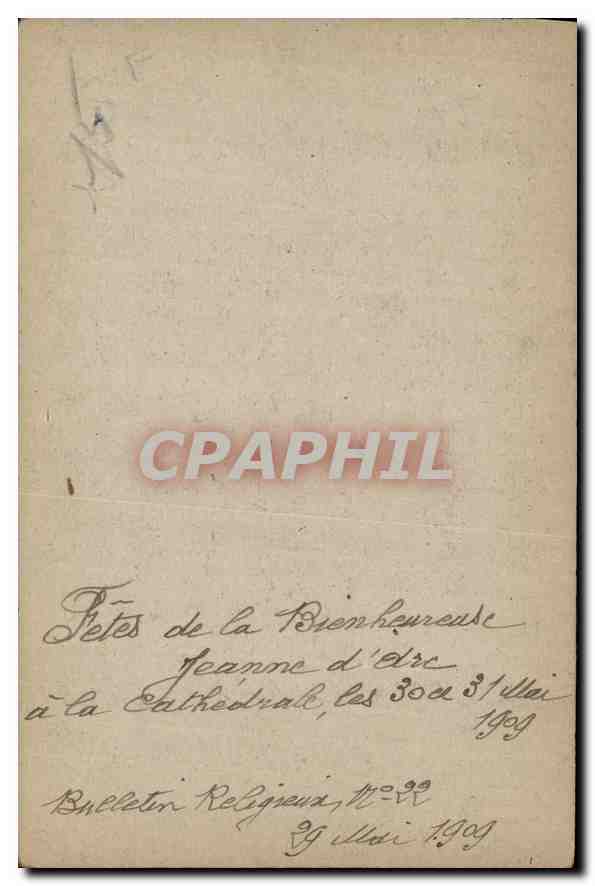 CPAPHIL
Fêtes de la Bienheureuse
Jeanne d'Arc
à la Cathédrale, les 30 et 31 Mai
1909
Bulletin Religieux, No 22
29 Mai 1909